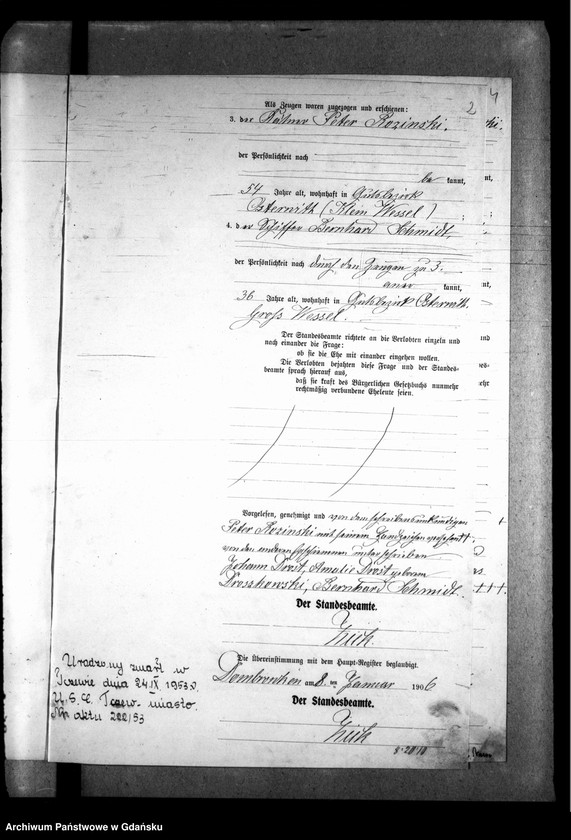 2 4
Als Zeugen waren zugezogen und erschienen:
3. der Käthner Peter Rozinski.
der Persönlichkeit nach
be kannt,
54 Jahre alt, wohnhaft in Gutsbezirk
Osterwitt (Klein Wessel) ;
4. der Schiffer Bernhard Schmidt,
der Persönlichkeit nach durch den Zeugen zu 3.
aner kannt,
36 Jahre alt, wohnhaft in Gutsbezirk Osterwitt.
Gross Wessel.
Der Standesbeamte richtete an die Verlobten einzeln und
nach einander die Frage:
ob sie die Ehe mit einander eingehen wollen.
Die Verlobten bejahten diese Frage und der Standes-
beamte sprach hierauf aus,
daß sie kraft des Bürgerlichen Gesetzbuchs nunmehr
rechtmäßig verbundene Eheleute seien.
Vorgelesen, genehmigt und von dem schreibensunkundigen
Peter Rozinski mit seinem Handzeichen versehen,
von den anderen Erschienenen unterschrieben
Johann Drost, Amalie Drost geborene
Droszkowski, Bernhard Schmidt. +++.
Der Standesbeamte.
Die Übereinstimmung mit dem Haupt-Register beglaubigt.
am 8. ten Januar 1906
Der Standesbeamte.
Urodzony zmarł w
Tczewie dnia 24.IX.1953 r.
U.S.C. Tczew-miasto.
Nr aktu 222/53
Archiwum Państwowe w Gdańsku